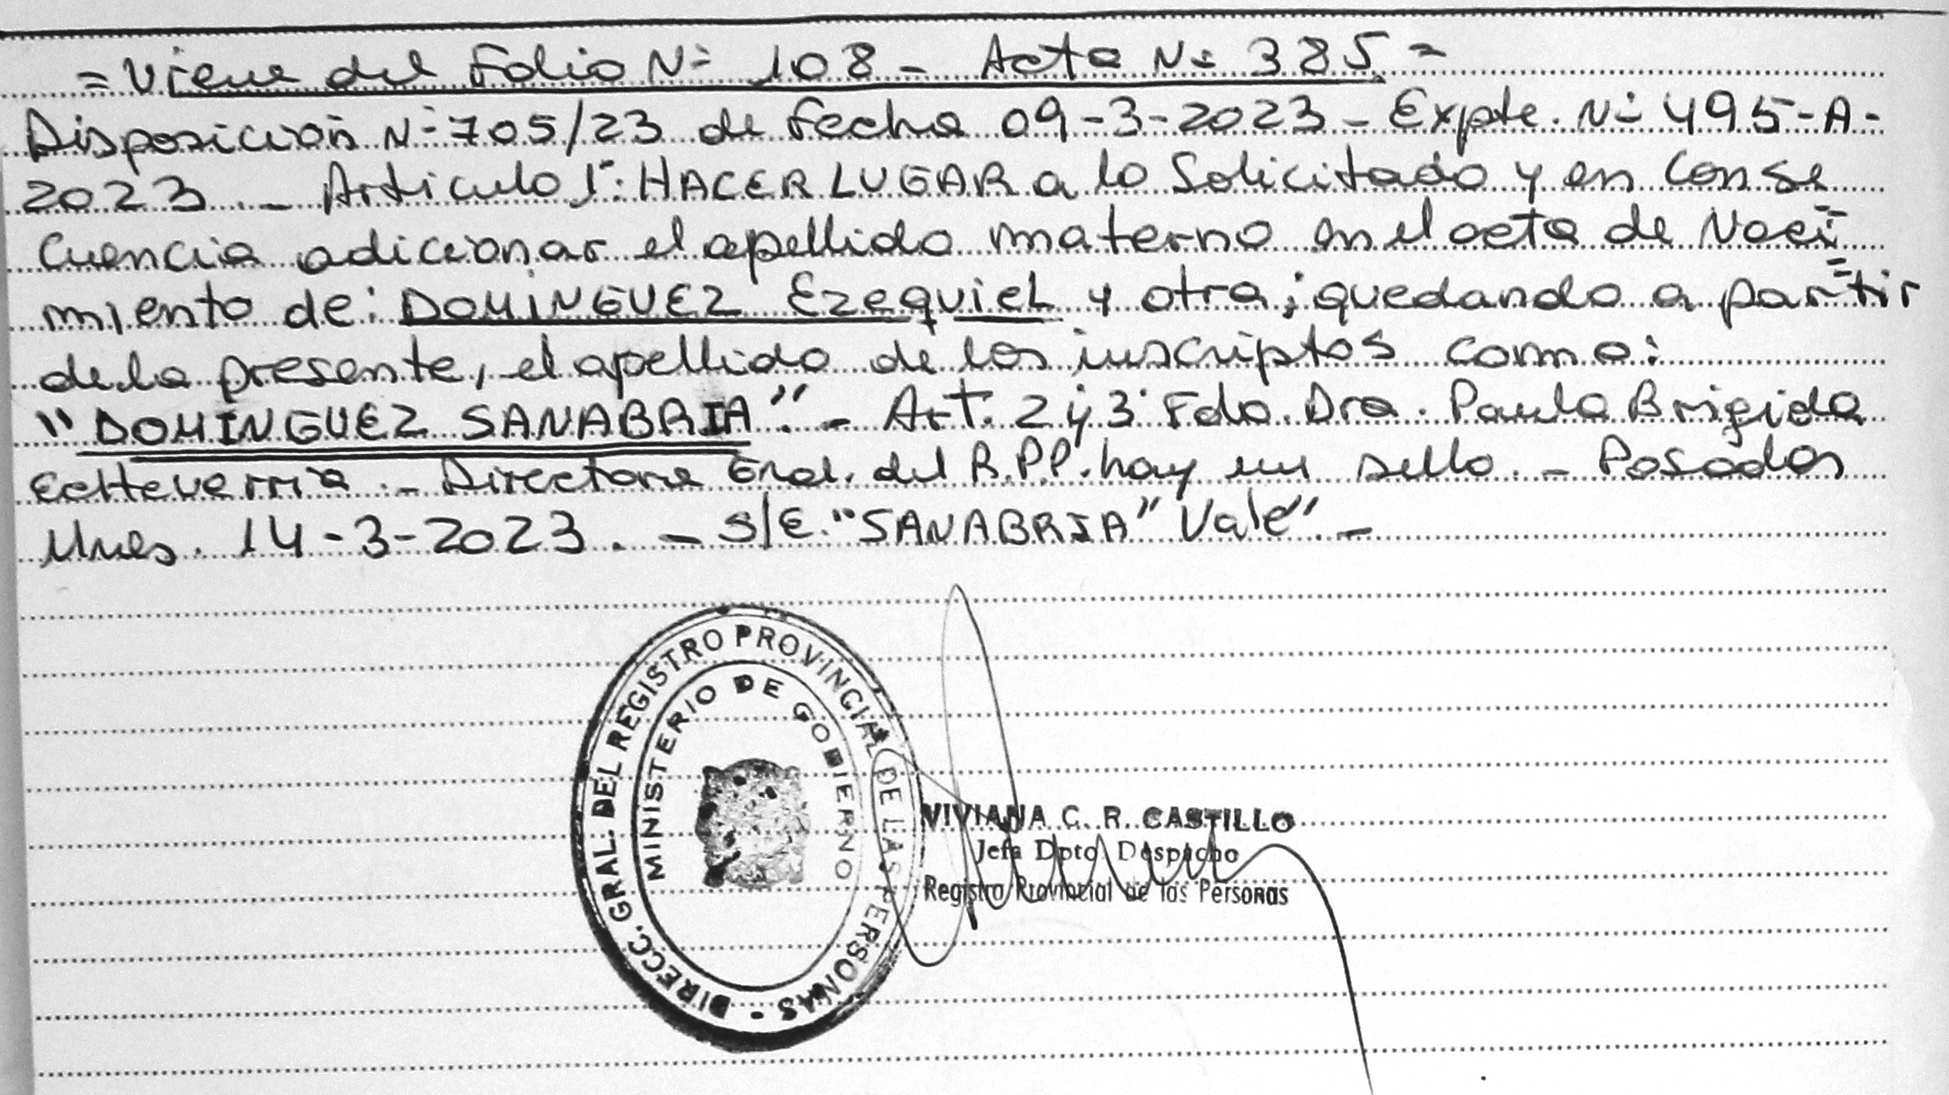 = Viene del Folio Nº 108 - Acta Nº 385 =
Disposición Nº 705/23 de fecha 09-3-2023 - Expte. Nº 495-A-
2023 .- Articulo 1º: HACER LUGAR a lo Solicitado y en Conse
cuencia adicionar el apellido materno en el acta de Naci
miento de: DOMINGUEZ Ezequiel y otra; quedando a partir
de la presente, el apellido de los inscriptos como:
"DOMINGUEZ SANABRIA".- Art. 2 y 3 Fdo. Dra. Paula Brigida
Echeverria .- Directora Gral. del R.P.P. hay un sello .- Posadas
Mnes. 14-3-2023 . - S/E. "SANABRIA" Vale".-
DIRECC. GRAL. DEL REGISTRO PROVINCIAL DE LAS PERSONAS -
MINISTERIO DE GOBIERNO
VIVIANA C. R. CASTILLO
Jefa Dpto. Despacho
Registro Provincial de las Personas